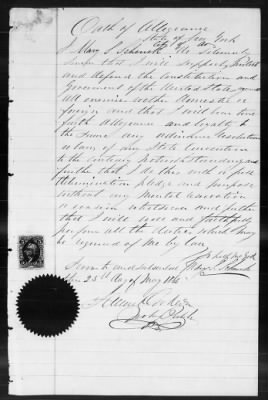 Oath of Allegiance
State of New York
I Mary S. Schenck do Solemnly
Swear that I will support, Protect
and defend the Constitution and
Government of the United States, against
all enemies whether domestic or
foreign and that I will bear true
faith Allegiance and loyalty to
the Same any ordinance Resolution
or law of any State Convention
to the contrary notwithstanding and
further that I do this with a full
determination pledge and purpose
without any mental reservation
or evasion whatsoever and further
that I will well and faithfully
perform all the duties which may
be required of me by law
Sworn to and subscribed
this 25th day of May 186